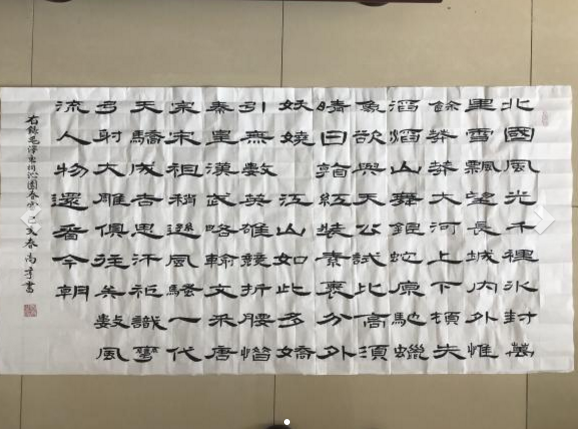 北國風光千裡冰封萬
里雪飄望長城內外惟
餘莽莽大河上下頓失
滔滔山舞銀蛇原馳蠟
象欲與天公試比高須
晴日看紅裝素裹分外
妖嬈 江山如此多嬌
引無數英雄競折腰惜
秦皇漢武略輸文采唐
宗宋祖稍遜風騷一代
天驕成吉思汗祗識彎
弓射大雕俱往矣數風
流人物還看今朝
右錄毛澤東詞沁園春雪己亥春尚書